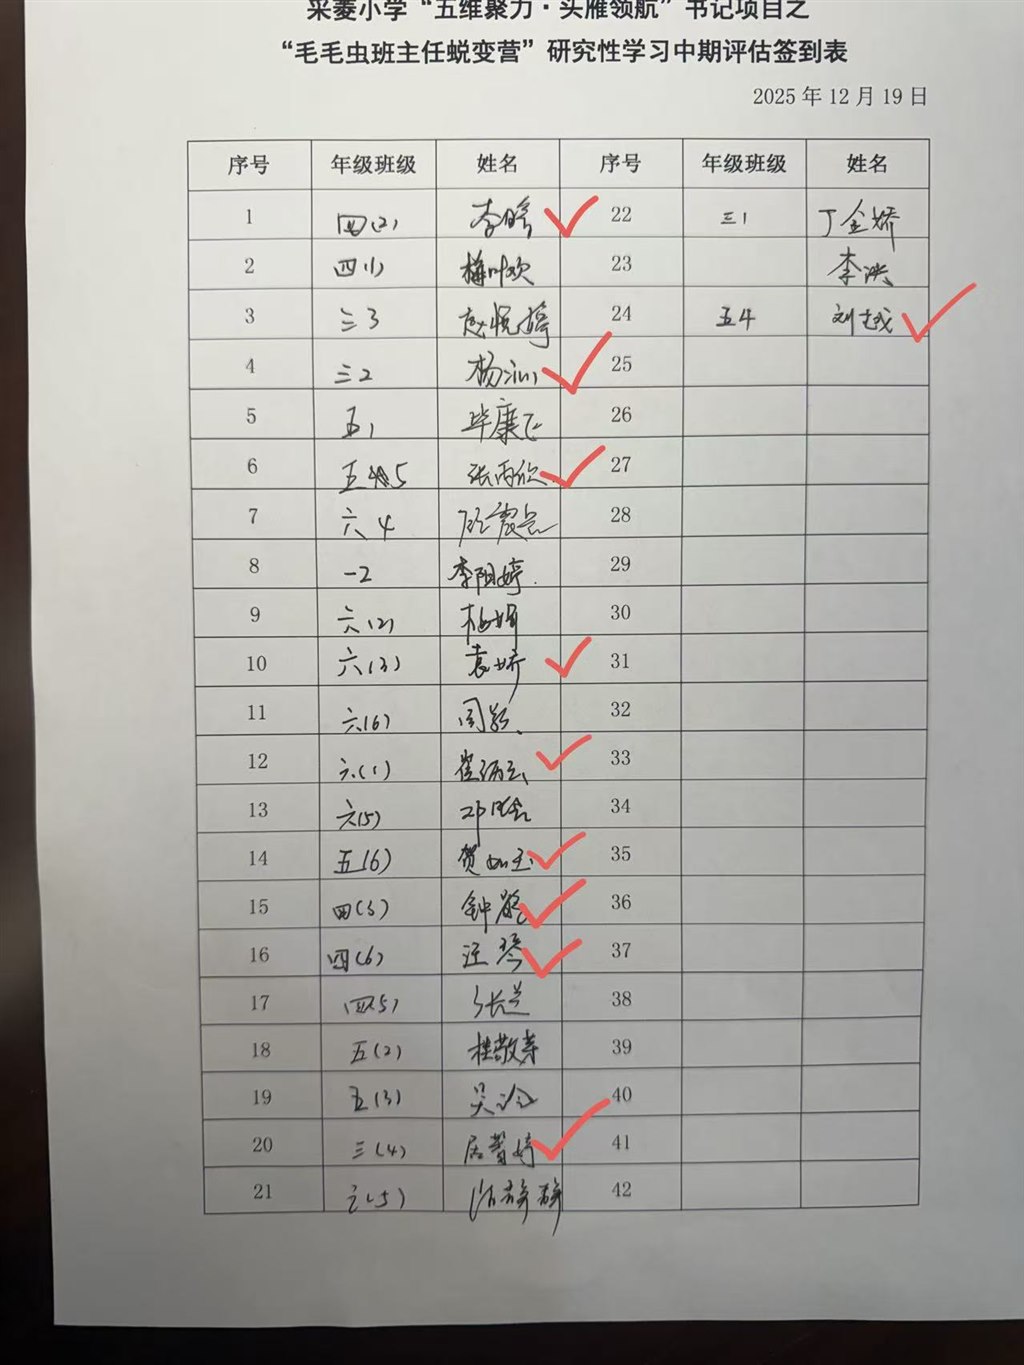 采菱小学“五维聚力·头雁领航”书记项目之
“毛毛虫班主任蜕变营”研究性学习中期评估签到表
2025 年 12 月 19 日
序号 年级班级 姓名 序号 年级班级 姓名
1 四(2) 李晗 22 三1 丁金娇
2 四(1) 梅叶欢 23 李洪
3 三3 赵悦婷 24 五4 刘越
4 三2 杨 25
5 五1 毕康飞 26
6 五5 张雨欣 27
7 六4 28
8 一2 李阳婷 29
9 六(2) 梅娟 30
10 六(3) 袁娇 31
11 六(6) 周 32
12 六(1) 崔 33
13 六(5) 34
14 五(6) 贺如玉 35
15 四(3) 钟 36
16 四(6) 汪琴 37
17 四(5) 张兰 38
18 五(2) 桂敬 39
19 五(3) 吴 40
20 三(4) 居 婷 41
21 (5) 静静 42